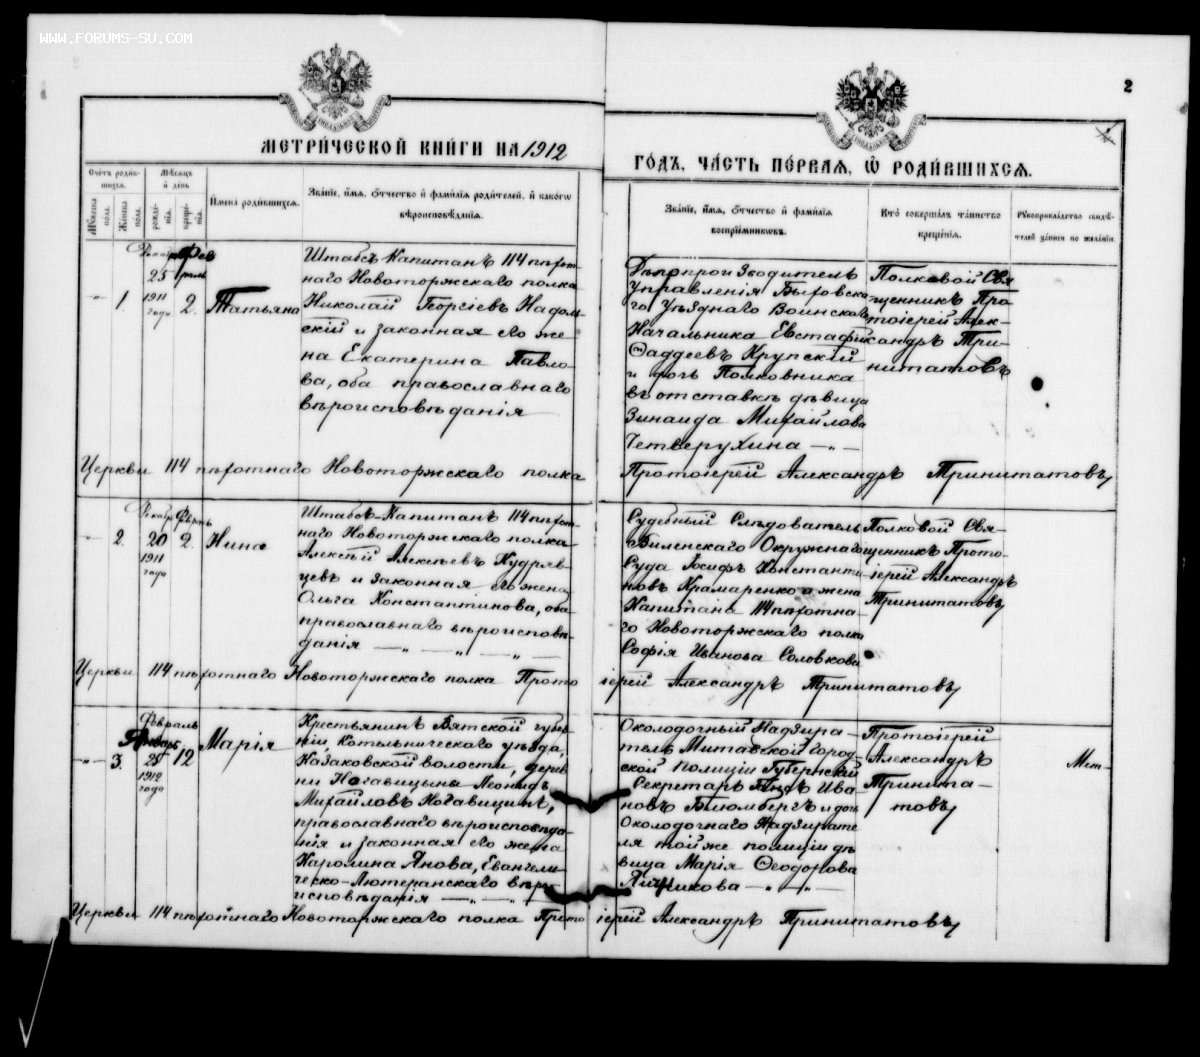 WWW.FORUMS-SU.COM
2
МЕТРИЧЕСКОЙ КНИГИ НА 1912
ГОДЪ, ЧАСТЬ ПЕРВАЯ, Ѡ РОДИВШИХСЯ.
Счетъ родив-
шихся.
Мужеска пола.
Женска пола.
Мѣсяцъ
и день
рожде-
нія.
креще-
нія.
Имена родившихся.
Званіе, имя, отчество и фамилія родителей, и какого
вѣроисповѣданія.
Званіе, имя, отчество и фамилія
воспріемниковъ.
Кто совершалъ таинство
крещенія.
Рукоприкладство свидѣ-
телей записи по желанію.
1
25
1911
года
2.
Татьяна
Штабсъ-Капитанъ 114 пѣхот-
наго Новоторжскаго полка
Николай Георгіевъ Надоль-
скій и законная его же-
на Екатерина Павло-
ва, оба православнаго
вѣроисповѣданія
Дѣлопроизводитель
Управленія Быховска-
го Уѣзднаго Воинскаго
Начальника Евстафій
Ѳаддеевъ Крупскій
и дочь Полковника
въ отставкѣ дѣвица
Зинаида Михайлова
Четверухина
Полковой Свя-
щенникъ Про-
тоіерей Алек-
сандръ Три-
нитатовъ
Церкви 114 пѣхотнаго Новоторжскаго полка Протоіерей Александръ Тринитатовъ
2
20
1911
года
2
Нина
Штабсъ-Капитанъ 114 пѣхот-
наго Новоторжскаго полка
Алексѣй Алексѣевъ Кудряв-
цевъ и законная его жена
Ольга Константинова, оба
православнаго вѣроисповѣ-
данія
Судебный Слѣдователь
Виленскаго Окружнаго
Суда Іосифъ Константи-
новъ Крамаренко и жена
Капитана 114 пѣхотна-
го Новоторжскаго полка
Софія Иванова Соловкова
Полковой Свя-
щенникъ Прото-
іерей Александръ
Тринитатовъ
Церкви 114 пѣхотнаго Новоторжскаго полка Прото іерей Александръ Тринитатовъ
3.
Февраль
Январь
1912
года
12
Марія
Крестьянинъ Вятской губер-
ніи, Котельническаго уѣзда,
Казаковской волости, дерев-
ни Ногавицына Леонидъ
Михайловъ Ногавицинъ,
православнаго вѣроисповѣда-
нія и законная его жена
Каролина Янова, Евангели-
ческо-Лютеранскаго вѣро-
исповѣданія
Околодочный Надзира-
тель Митавской город-
ской полиціи Губернскій
Секретарь Ива-
новъ Блюмбергъ и дочь
Околодочнаго Надзирате-
ля той же полиціи дѣ-
вица Марія Ѳеодорова
Протоіерей
Александръ
Тринита-
товъ
Мет-
Церкви 114 пѣхотнаго Новоторжскаго полка Прото іерей Александръ Тринитатовъ